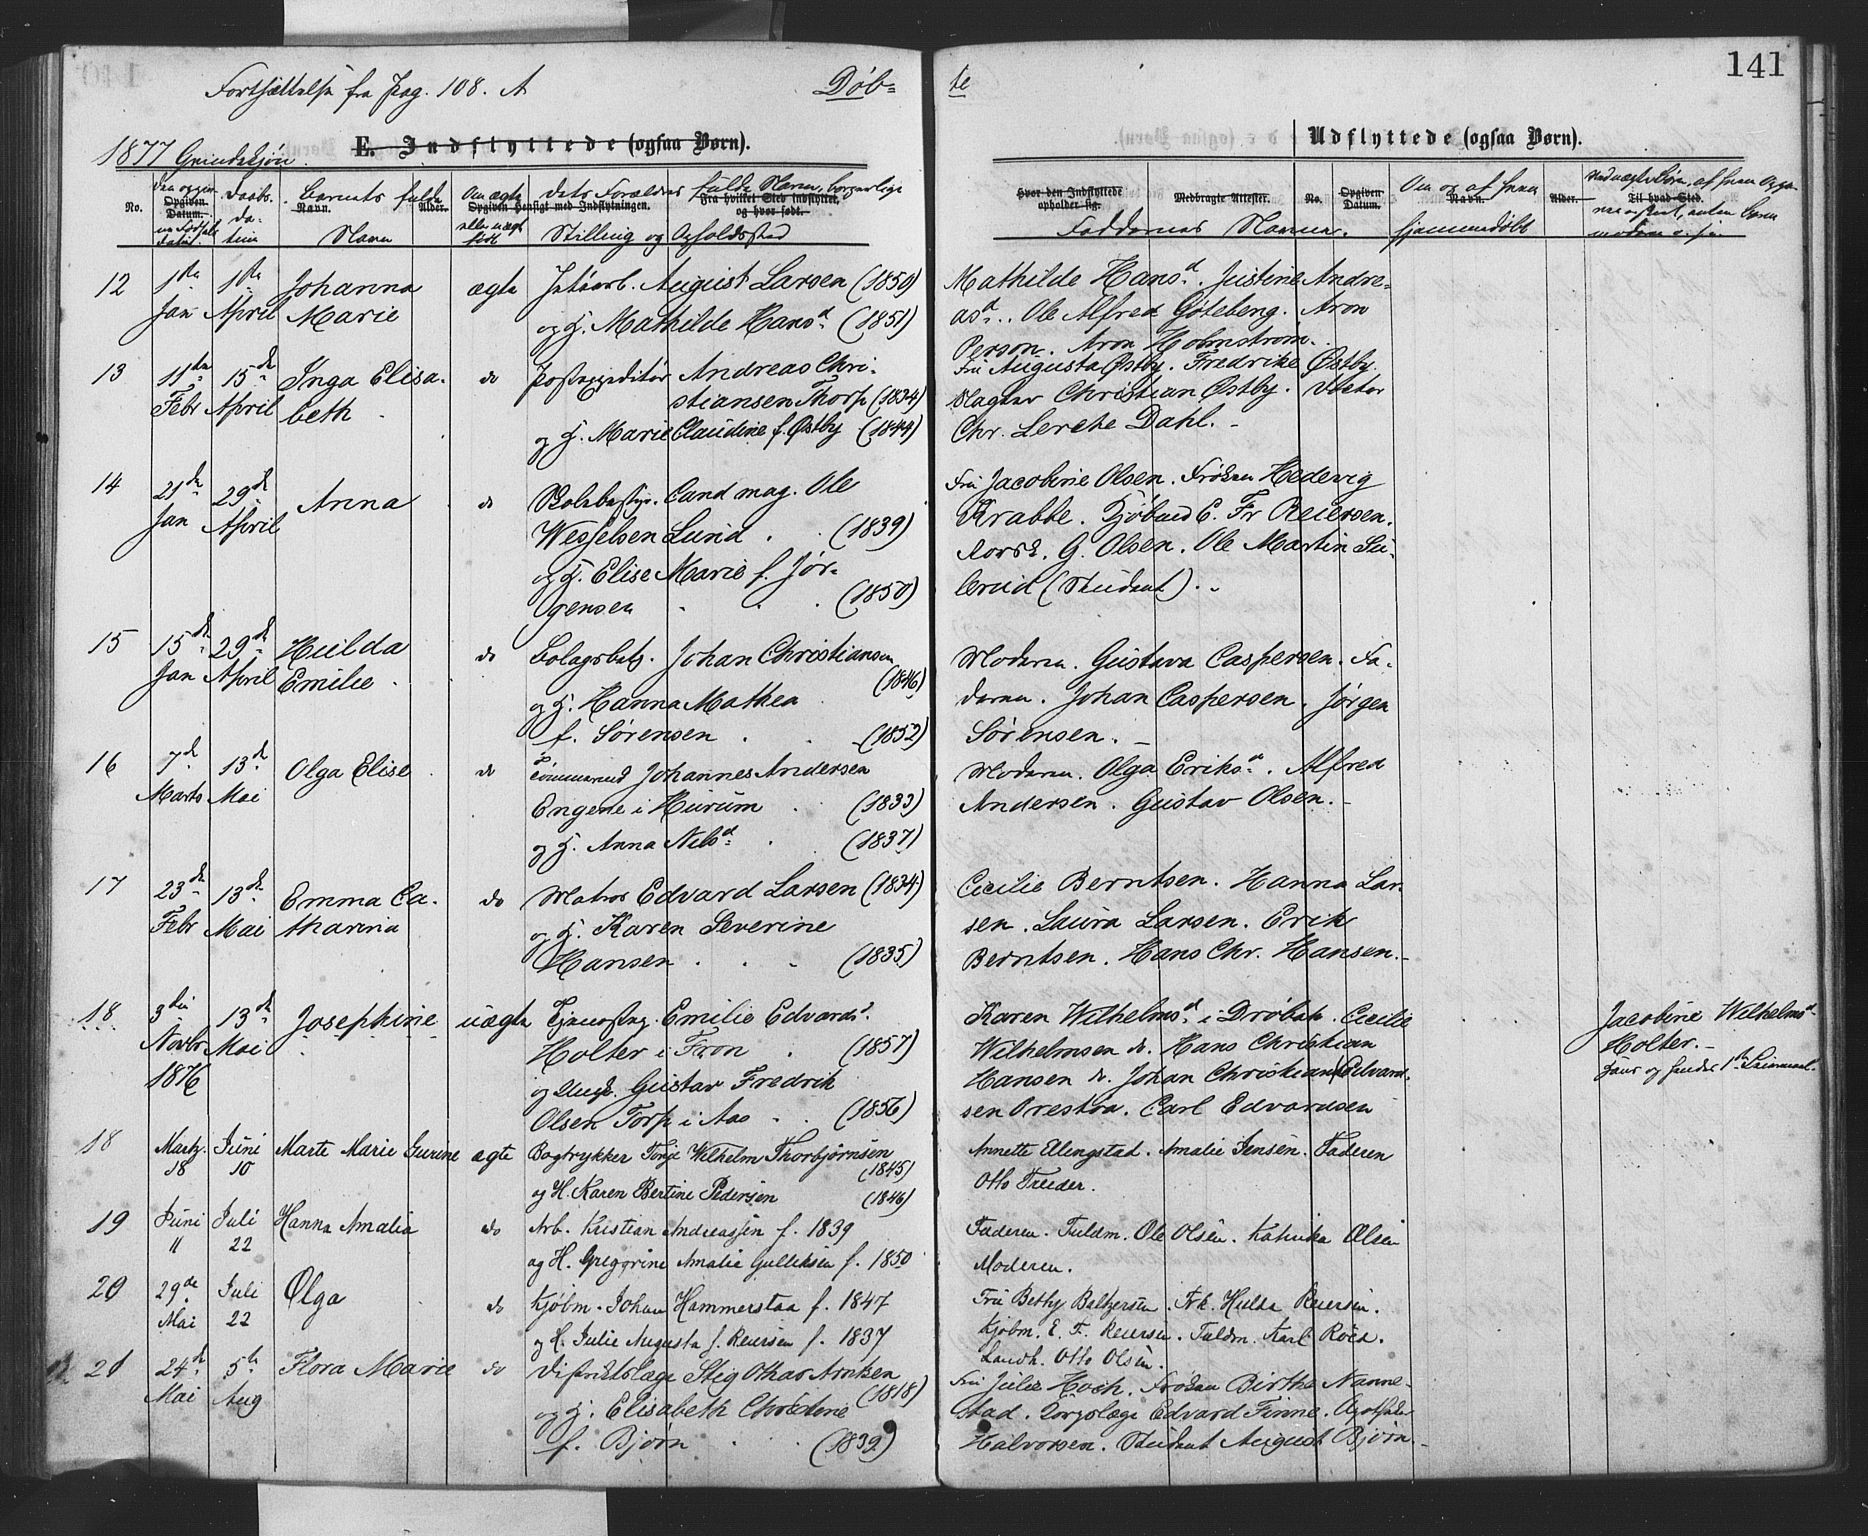 141
Fortsættelse fra Pag. 108. A
Døb=
te
E. Indflyttede (ogsaa Børn).
Udflyttede (ogsaa Børn).
1877 Grindesjön.
No.
Opgiven Datum.
Daabs-
da-
tum
Barnets fulde
Navn.
Alder.
Navn
Om ægte
eller uægte
født
Opgiven Hensigt med Indflytningen.
dets Forældres fulde Navn, borgerlige
Fra hvilket Sted indflyttet, og hvor født.
Stilling og Opholdssted
Hvor den Indflyttede opholder sig.
Medbragte Attester.
No.
Opgiven Datum.
Faddernes Navne.
Om og af hvem
Navn.
hjemmedøbt
Alder.
Til hvad Sted.
12 1ste Jan 1ste April Johanna Marie ægte
August Larsen (1850)
og H. Mathilde Hansd. (1851)
Mathilde Hansd. Justine Andre-
asd. Ole Alfred Göteberg. Aron
Person. Aron Holmstrøm.
13 11te Febr 15de April Inga Elisa-
beth
do Postexpeditør Andreas Chri-
stiansen Thorp (1834)
og H. Marie Claudine f. Østby (1849)
Fru Augusta Østby. Fredrike Østby.
Slagter Christian Østby. Doktor
Chr. Lerche Dahl.
14 21de Jan 29de April Anna
do Skolebestyr. Cand mag. Ole
Wesselsen Lund (1839)
og H. Elise Marie f. Jør-
gensen (1850)
Fru Jacobine Olsen. Frøken Hedevig
Krabbe. Kjøbmd E. Fr Reiersen.
G. Olsen. Ole Martin
(Student)
15 15de Jan 29de April Hulda
Emilie
do Johan Christiansen
(1846)
og H. Hanna Mathea
f. Sørensen (1852)
Moderen. Gustava Caspersen. Fa-
deren. Johan Caspersen. Jørgen
Sørensen.
16 7de Marts 13de Mai Olga Elise
do Tømmermd Johannes Andersen
Engene i Hurum (1833)
og H. Anna Nilsd. (1837)
Moderen. Olga Eriksd. Alfred
Andersen. Gustav Olsen.
17 23de Febr 13de Mai Emma Ca-
tharina
do Matros Edvard Larsen (1834)
og H. Karen Severine
Hansen (1835)
Cecilie Berntsen. Hanna Lar-
sen. Laura Larsen. Erik
Berntsen. Hans Chr. Hansen.
18 3die Novbr 1876 13de Mai Josephine uægte
Tjenestep. Emilie Edvardsd.
Holter i Fron (1857)
og Ungk. Gustav Fredrik
Olsen Torp i Aas (1856)
Karen Wilhelmsd. i Drøbak. Cecilie
Wilhelmsen do. Hans Christian
Hansen do. Johan Christian Edvard-
sen Carl Edvardsen
Jacobine Wilhelmsd.
Holter.
hans og hendes 1ste Leiermaal.
18 Marts 18 Juni 10 Marte Marie Gurine ægte
Bogtrykker Tønje Wilhelm Thorbjørnsen
(1845)
og H. Karen Bertine Pedersen (1846)
Annette Ellingstad. Amalie Jensen. Faderen
Otto Treider.
19 Juni 11 Juli 22 Hanna Amalia
do Arb. Kristian Andreassen f. 1839
og H. Gregorine Amalie Gulliksen f. 1850
Faderen. Fuldm. Ole Olsen. Katinka Olsen
Moderen.
20 29de Mai Juli 22 Olga
do Kjøbm. Johan Hammerstaa f. 1847
og H. Julie Augusta f. Reiersen f. 1837
Fru Bethy Baltzersen. Frk. Hulda Reiersen.
Kjøbm. E. F. Reiersen. Fuldm. Karl Roed.
Landh. Otto Olsen.
21 24de Mai 5te Aug Flora Marie
do Distriktslæge Stig Othar Arntzen
(1818)
og H. Elisabeth Christine
f. Bjørn (1839)
Fru Julie Hoch. Frøken Birthe Nanne-
stad. Korpslæge Edvard Finne. Apotheker
Halvorsen. Student August Bjørn.